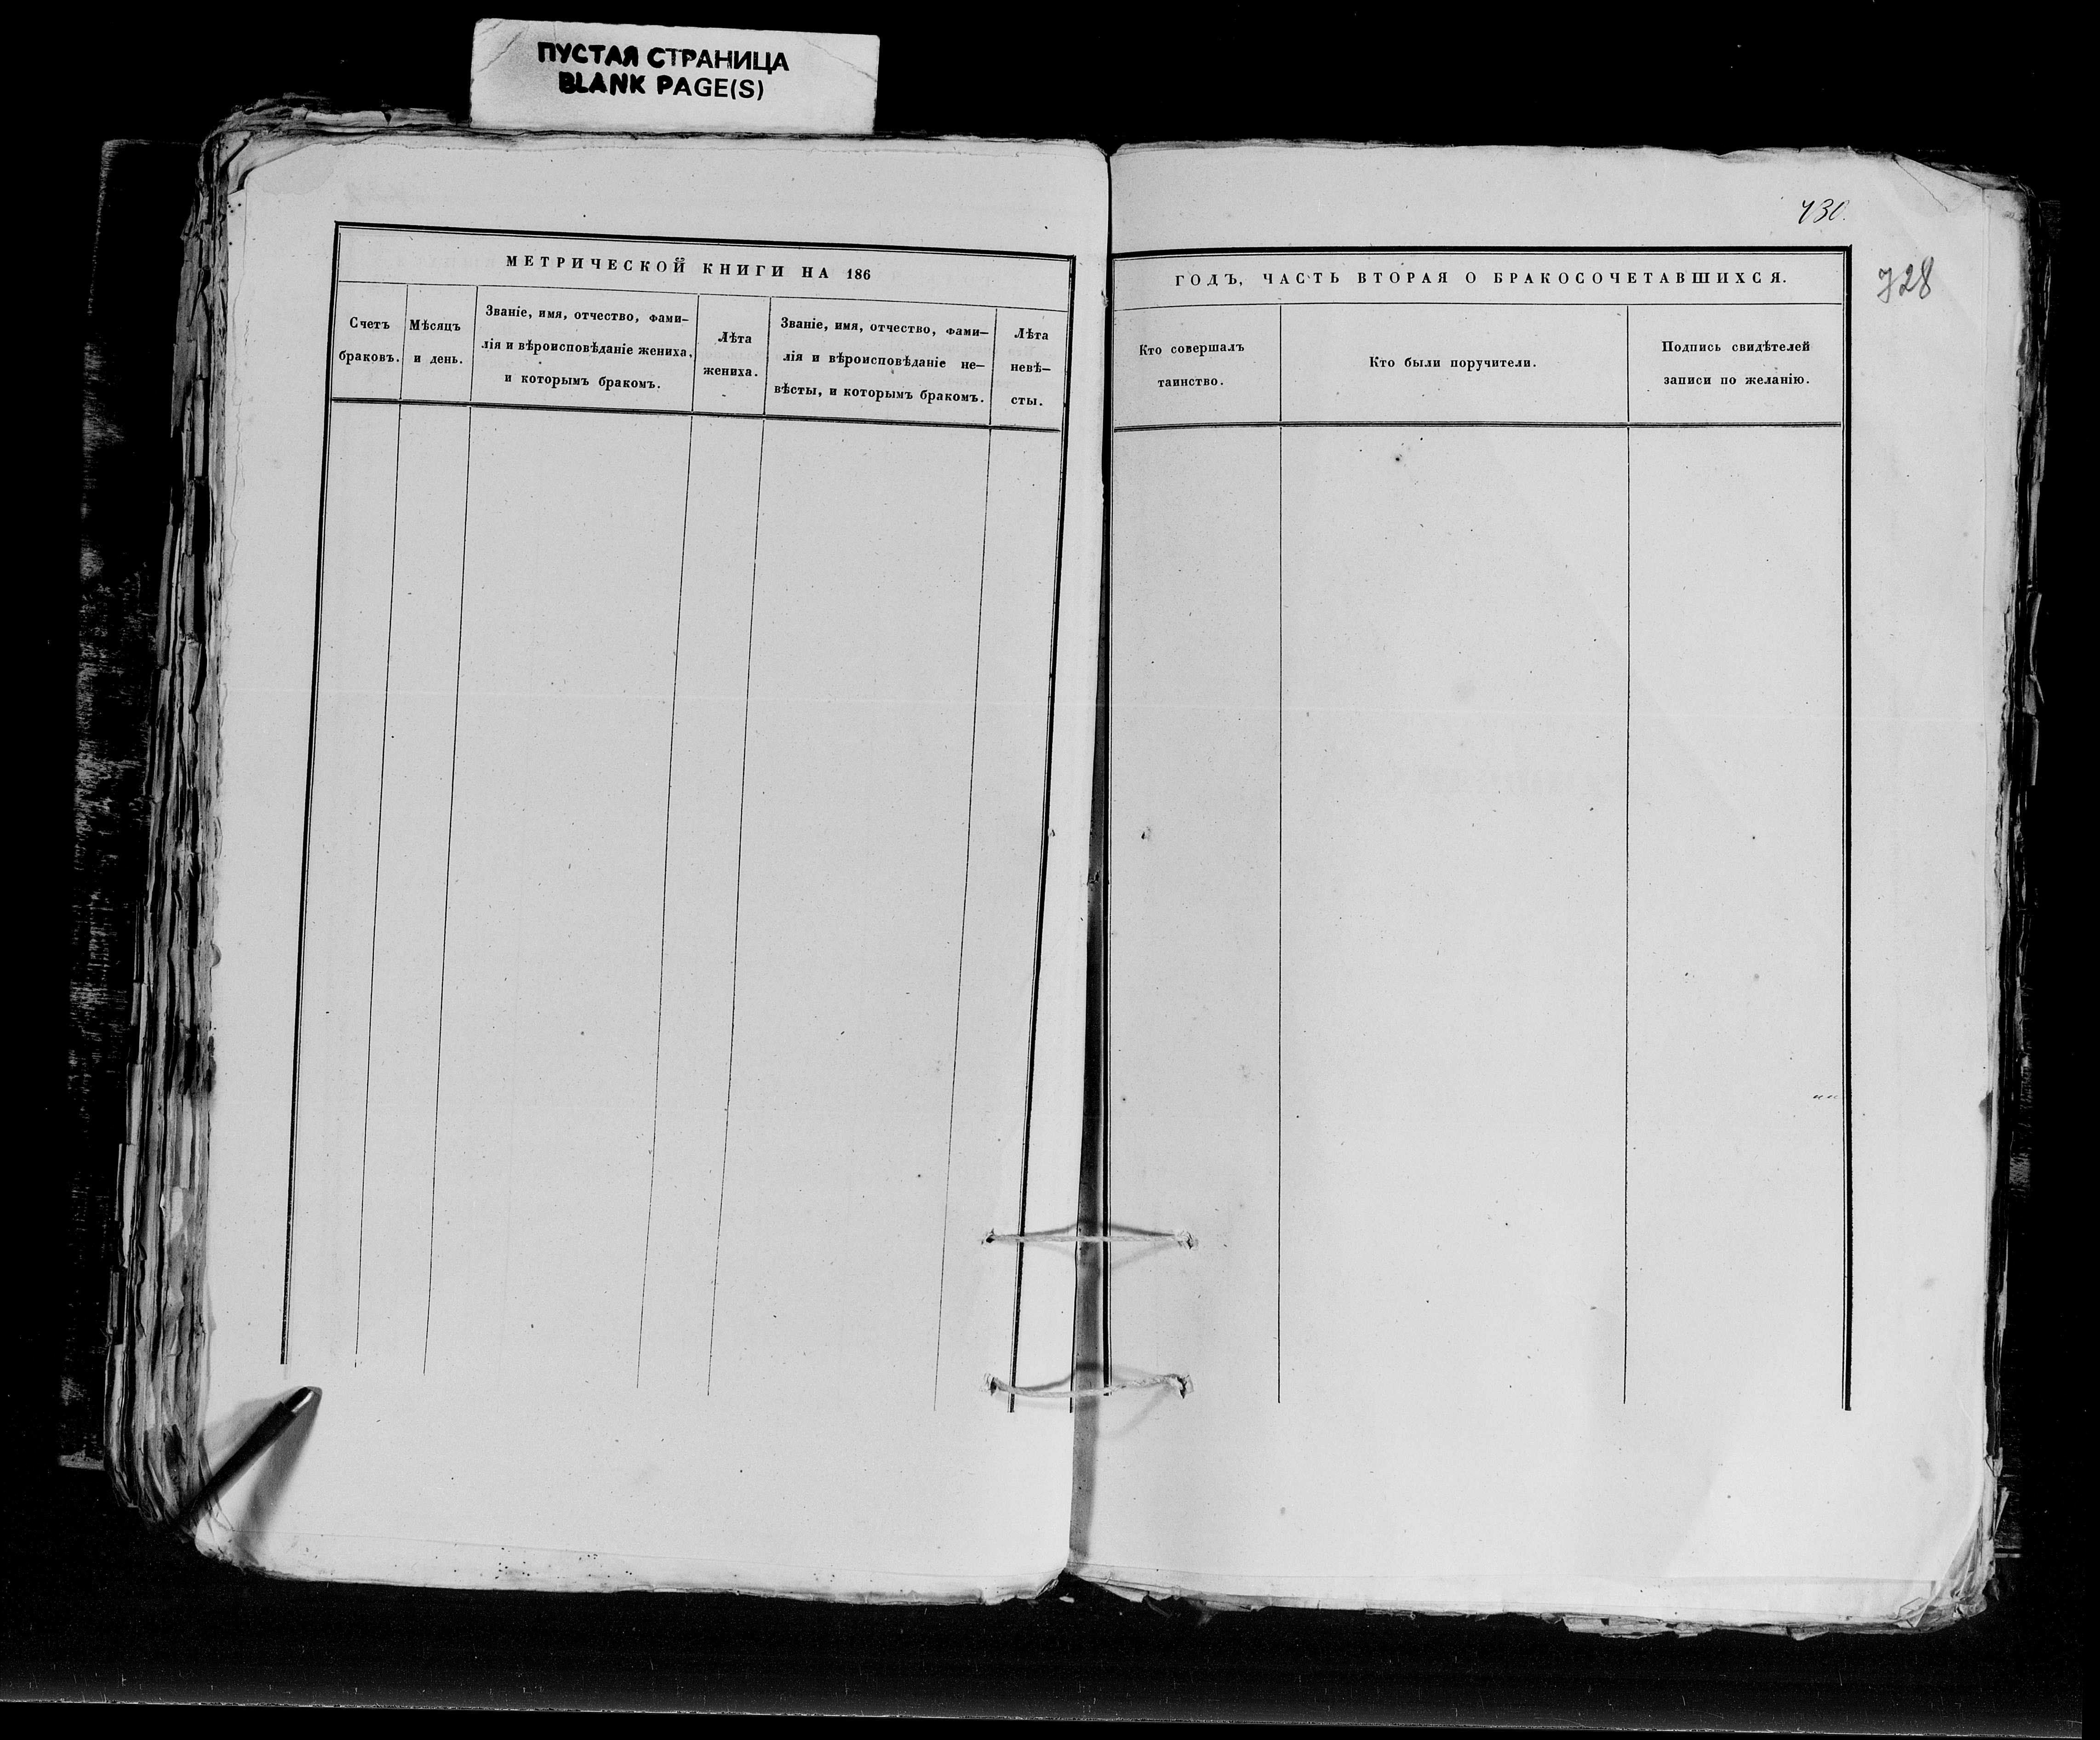 ПУСТАЯ СТРАНИЦА
BLANK PAGE(S)
МЕТРИЧЕСКОЙ КНИГИ НА 186
Счетъ
браковъ.
Мѣсяцъ
и день.
Званіе, имя, отчество, фами–
лія и вѣроисповѣданіе жениха,
и которымъ бракомъ.
Лѣта
жениха.
Званіе, имя, отчество, фами–
лія и вѣроисповѣданіе не–
вѣсты, и которымъ бракомъ.
Лѣта
невѣ–
сты.
730.
728
ГОДЪ, ЧАСТЬ ВТОРАЯ О БРАКОСОЧЕТАВШИХСЯ.
Кто совершалъ
таинство.
Кто были поручители.
Подпись свидѣтелей
записи по желанію.